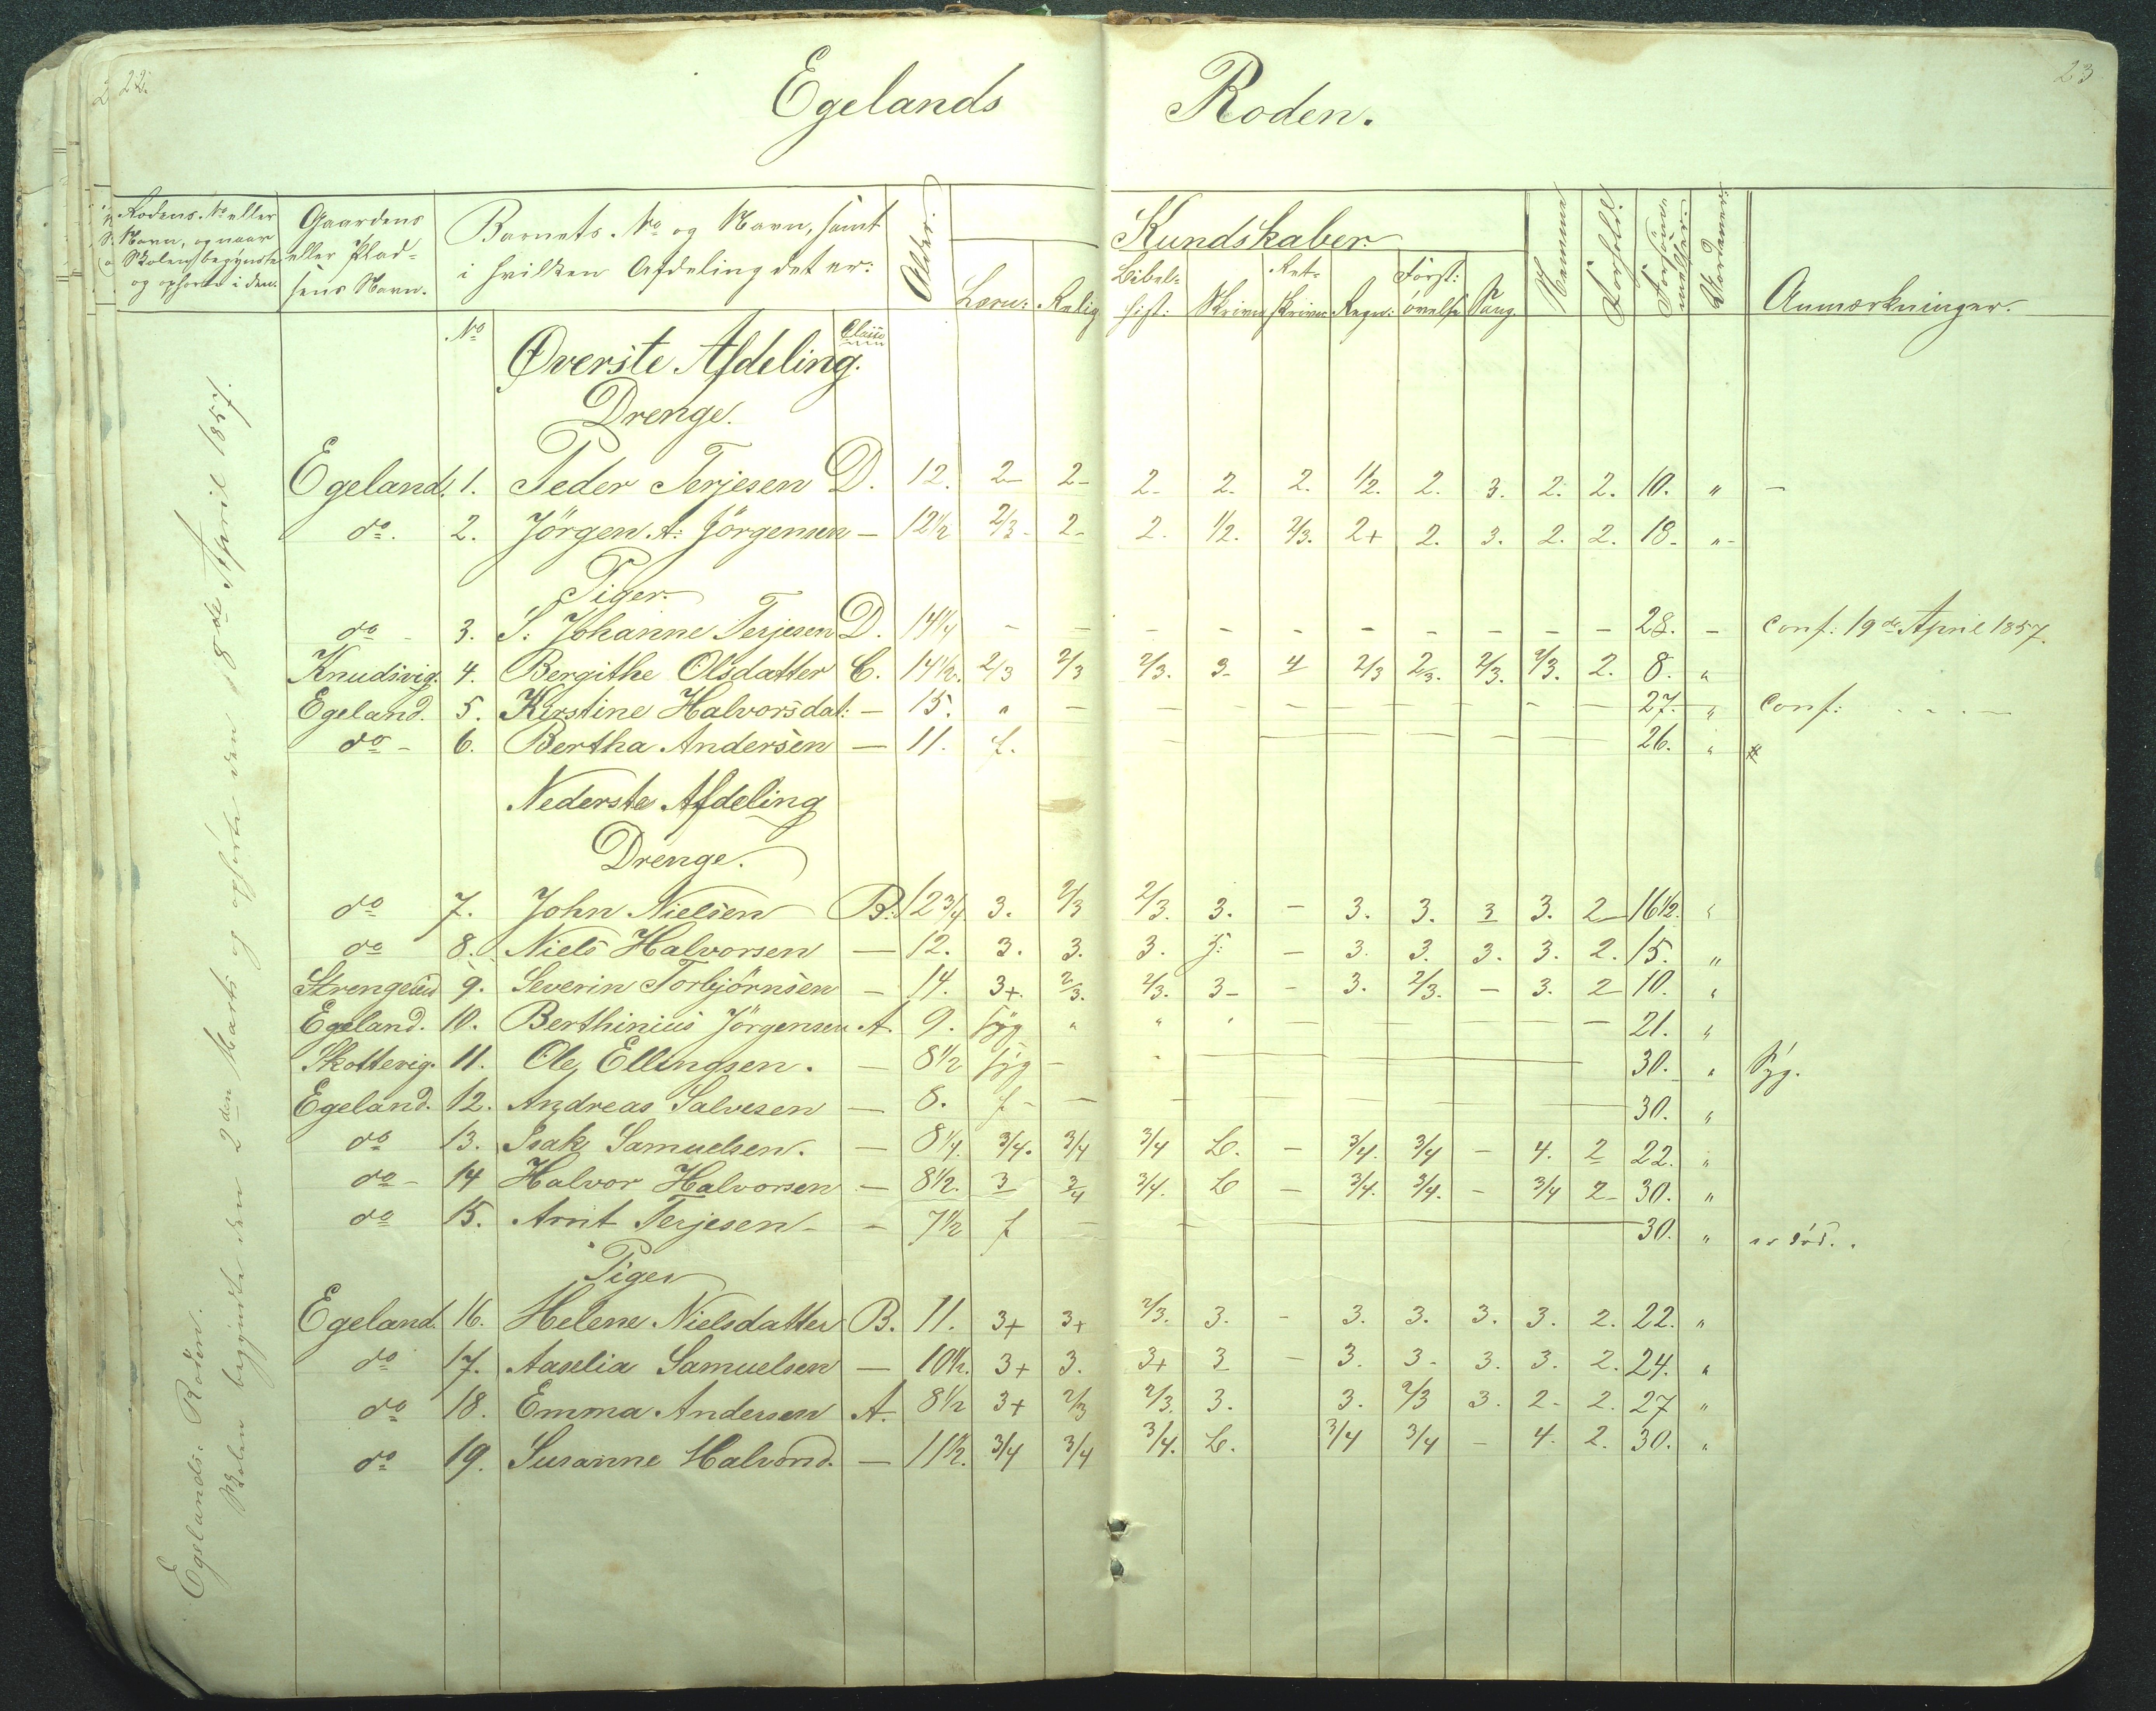 22. 23
Egelands Roden.
Rodens No eller Navn, og naar Skolen begyndte og ophørte i den.
Gaardens eller Plad-sens Navn.
Barnets No og Navn, samt i hvilken Afdeling det er:
Alder.
Kundskaber
Læsn: Relig Bibel-hist: Skrivn Ret-skrivn Regn: Forst: øvelse Sang.
Nemme Forhold. Forsømmelser. Anmærkninger.
No Øverste Afdeling. Classe
Drenge.
Egeland. 1. Peder Terjesen D. 12. 2- 2- 2. 2. 2. 1/2. 2. 3. 2. 2. 10. " -
do. 2. Jörgen A: Jörgensen - 12 1/2 2/3- 2- 2. 1/2. 2/3. 2+ 2. 3. 2. 2. 18. "-
Piger.
do - 3. S: Johanne Terjesen D. 14 1/4 - - - - - - - - - - 28. - Conf: 19de April 1857.
Knudsvig. 4. Bergithe Olsdatter C. 14 1/2. 2/3 2/3 2/3. 3- 4 2/3 2/3. 2/3. 2/3. 2. 8. "
Egeland. 5. Kirstine Halvorsdat: - 15. " - - - - - - - - - 27. " Conf: - - - -
do - 6. Bertha Andersen - 11. f. - - - - - - - 26. "
Nederste Afdeling
Drenge.
do 7. John Nielsen B. 12 3/4 3. 2/3 2/3. 3. - 3. 3. 3 3. 2- 16 1/2. "
do 8. Niels Halvorsen - 12. 3. 3. 3. 3: - 3. 3. 3. 3. 2. 15. "
9. Severin Torbjörnsen - 14. 3+. 2/3. 2/3. 3- - 3. 2/3. - 3. 2- 10. "
Egeland. 10. Berthinius Jörgensen A. 9. syg " " " - - - - - - 21. "
Skottevig. 11. Ole Ellingsen. - 8 1/2 syg - - - - - - 30. " Syg.
Egeland. 12. Andreas Salvesen - 8. f- - - - - - - - 30. "
do 13. Isak Samuelsen. - 8 1/4. 3/4. 3/4 3/4 B. - 3/4. 3/4 - 4. 2 22. "
do - 14 Halvor Halvorsen - 8 1/2. 3 3/4 3/4. B - 3/4. 3/4. - 3/4 2- 30. "
do 15. Arnt Terjesen - - 7 1/2 f - - - 30. "
Piger
Egeland. 16. Helene Nielsdatter B. 11. 3+ 3+ 2/3. 3. - 3. 3. 3. 3. 2. 22. "
do 17. Aaselia Samuelsen - 10 1/2. 3+ 3. 3+ 3 - 3. 3- 3. 3. 2. 24. "
do 18. Emma Andersen A. 8 1/2 3+ 2/3 2/3. 3. 3. 2/3 3. 2- 2. 27 "
do 19. Susanne Halvorsd. - 11 1/2. 3/4 3/4 3/4. B. 3/4 3/4 - 4. 2. 30. "
Egelands Roden.
Skolen begyndte den 2den Marts og ophørte den 8de April 1857.